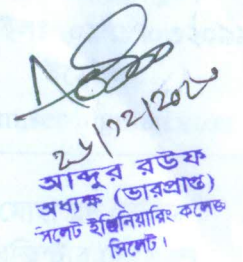 ২৬/১২/২০২০
আব্দুর রউফ
অধ্যক্ষ (ভারপ্রাপ্ত)
সিলেট ইঞ্জিনিয়ারিং কলেজ
সিলেট।